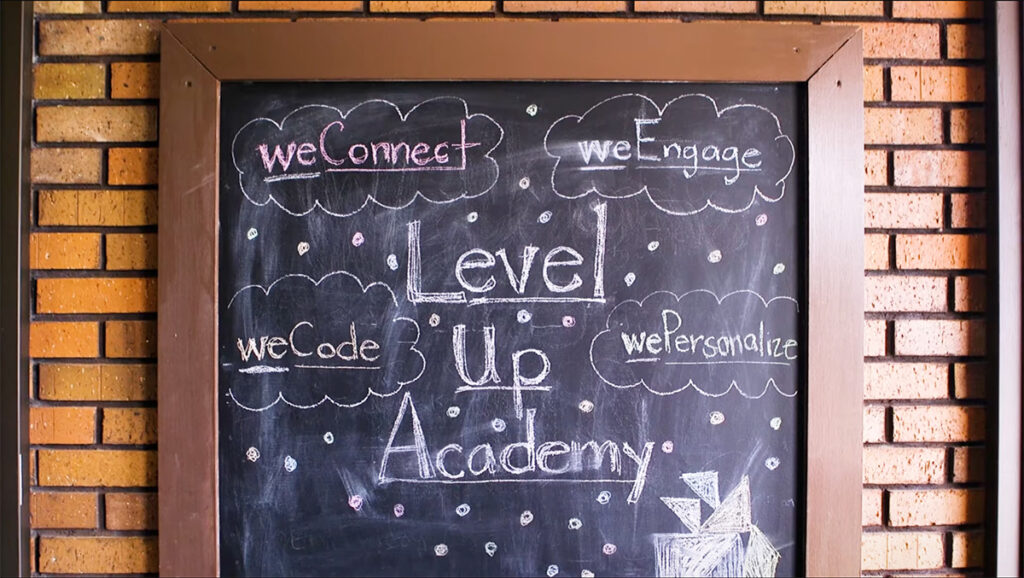 weConnect
weEngage
Level
Up
Academy
weCode
wePersonalize